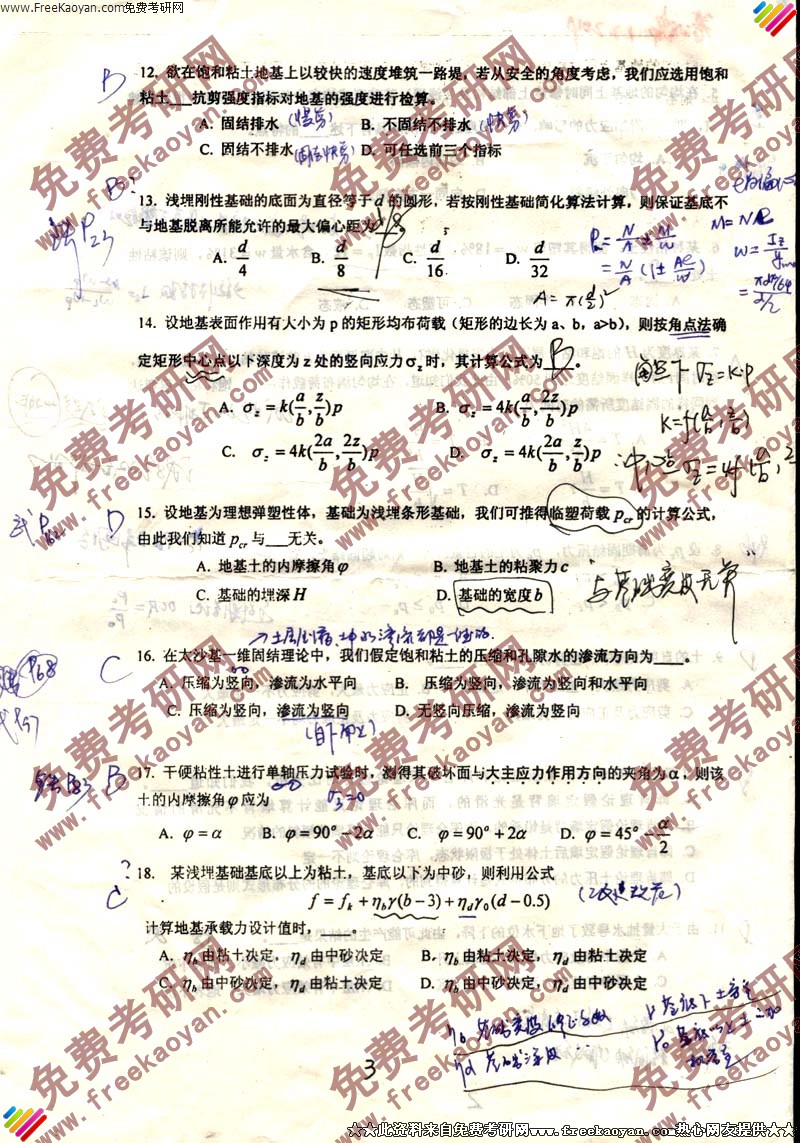 www.FreeKaoyan.com免费考研网
B
12. 欲在饱和粘土地基上以较快的速度堆筑一路堤，若从安全的角度考虑，我们应选用饱和
粘土___抗剪强度指标对地基的强度进行检算。
A. 固结排水 (慢剪) B. 不固结不排水 (快剪)
C. 固结不排水 (固结快剪) D. 可任选前三个指标
B
13. 浅埋刚性基础的底面为直径等于 d 的圆形，若按刚性基础简化算法计算，则保证基底不
与地基脱离所能允许的最大偏心距为 d/8。
A. d/4 B. d/8 C. d/16 D. d/32
A=π(d/2)²
14. 设地基表面作用有大小为 p 的矩形均布荷载（矩形的边长为 a、b，a>b），则按角点法确
定矩形中心点以下深度为 z 处的竖向应力σz时，其计算公式为 B 。
A. σz=k(a/b, z/b)p B. σz=4k(a/b, 2z/b)p
C. σz=4k(2a/b, 2z/b)p D. σz=4k(2a/b, z/b)p
D
15. 设地基为理想弹塑性体，基础为浅埋条形基础，我们可推得临塑荷载 pcr 的计算公式，
由此我们知道 pcr 与___无关。
A. 地基土的内摩擦角φ B. 地基土的粘聚力 c
C. 基础的埋深 H D. 基础的宽度 b
与基础宽度无关
C
16. 在太沙基一维固结理论中，我们假定饱和粘土的压缩和孔隙水的渗流方向为____。
A. 压缩为竖向，渗流为水平向 B. 压缩为竖向，渗流为竖向和水平向
C: 压缩为竖向，渗流为竖向 D. 无竖向压缩，渗流为竖向
B
17. 干硬粘性土进行单轴压力试验时，测得其破坏面与大主应力作用方向的夹角为α，则该
土的内摩擦角φ应为
σ3=0
A. φ=α B. φ=90°−2α C. φ=90°+2α D. φ=45°−α/2
?
C
18. 某浅埋基础基底以上为粘土，基底以下为中砂，则利用公式
f=fk+ηbγ(b−3)+ηdγ0(d−0.5)
计算地基承载力设计值时，____。
A. ηb由粘土决定，ηd由中砂决定 B. ηb由粘土决定，ηd由粘土决定
C. ηb由中砂决定，ηd由粘土决定 D. ηb由中砂决定，ηd由中砂决定
3
免费考研网
www.freekaoyan.com
★★此资料来自免费考研网www.freekaoyan.com热心网友提供★★